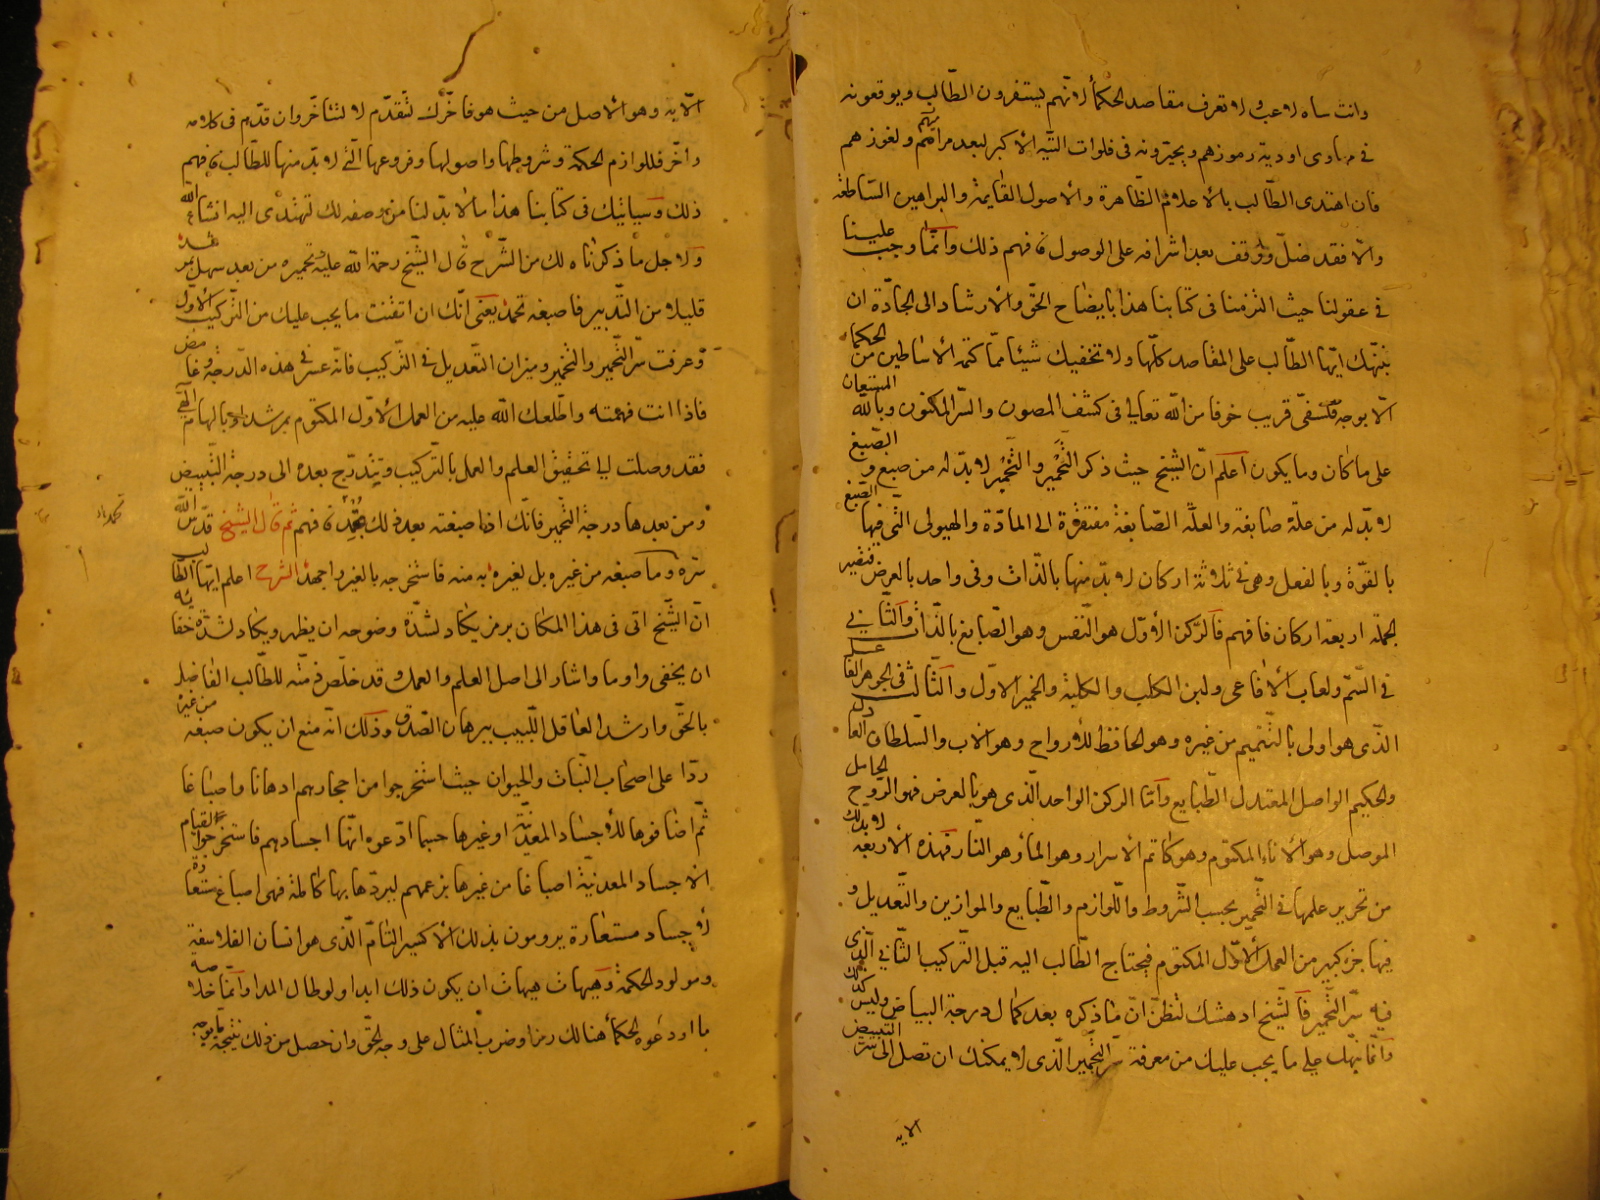 وانت ساه لاعب لا تعرف مقاصد الحكمأ لانهم يستفزون الطّالب ويوقعونه
في مهاوى اودية رموزهم ويحيّرونه فى فلوات التّيه الأكبر لبعد مراميهم ولغوزهم
فان اهتدى الطّالب بالأعلام الظّاهرة والأصول القايمة والبراهين السّاطعة
والّا فقد ضلّ ووقف بعد اشرافه على الوصول فافهم ذلك وانّما وجب علينا
في عقولنا حيث التزمنا فى كتابنا هذا بايضاح الحقّ والأرشاد الى الجادّة ان
ننبّهك ايّها الطّالب على المقاصد كلّها ولا نخفيك شيئا ممّا كتمه الأساطين من الحكما
الّا بوجه فلسفىّ قريب خوفا من اللّه تعالى فى كشف المصون والسّر المكنون وباللّه المستعان
على ماكان وما يكون اعلم انّ الشّيخ حيث ذكر التّحمير والتّخمير لا بدّ له من صبغ والصّبغ
لا بدّ له من علّة صابغة والعلّة الصّابغة مفتقرة الى المادّة والهيولى الّتى فيها الصّبغ
بالقوّة وبالفعل وهى فى ثلاثة اركان لا بدّ منها بالذّات وفى واحد بالعرض فتصير
لجملة اربعة اركان فافهم فالرّكن الأوّل هو النّفس وهو الصّابغ بالذّات والثّانى
فى السّم ولعاب الأفاعى ولبن الكلب والكلبة والخمير الاوّل والثّالث فى الجوهر الفاعل
الّذى هو اولى بالتّتميم من غيره وهو الحافظ للأرواح وهو الاب والسّلطان العادل
والحكيم الواصل المعتدل الطّبايع وامّا الركن الواحد الّذى هو بالعرض فهو الرّوح الحامل
الموصل وهو الأناء المكتوم وهو كاتم الأسرار وهو الماء وهو النّار فهذه الأربعة لا بدّ لك
من تحرير علمها فى التّخمير بحسب الشّروط واللّوازم والطّبايع والموازين والتّعديل و
فيها جزء كبير من العمل الأوّل المكتوم فيحتاج الطّالب اليه قبل التّركيب الثّانى الّذى
فيه سرّ التّخمير فالشّيخ ادهشك لتظنّ انّ ماذكره بعد كمال درجة البياض وليس كذلك
وانّما نبّهك على ما يجب عليك من معرفة سرّ التّخمير الّذى لا يمكنك ان تصل الى سرّ التّبييض
الّا به
الّا به وهو الأصل من حيث هو فاخّرك لتتقدّم لا لتتأخّر وان قدّم فى كلامه
واخّر فللوازم الحكمة وشروطها واصولها وفروعها الّتى لا بدّ منها للطّالب فافهم
ذلك وسياتيك فى كتابنا هذا ما لا بدّ لنا من وصفه لك لتهتدى اليه انشاء اللّه
ولاجل ما ذكرناه لك من الشّرح قال الشّيخ رحمة اللّه عليه وتحميره من بعد سهل
قليلا من التّدبير فاصبغه تحمد يعنى انّك ان اتقنت ما يجب عليك من التّركيب الأوّل
وعرفت سرّ التّحمير والتّخمير وميزان التّعديل فى التّركيب فانّه عسر فى هذه الدّرجة وغامض
فاذا انت فهمته واطّلعك اللّه عليه من العمل الأوّل المكتوم بمرشد او بالهام الهى
فقد وصلت الى تحقيق العلم والعمل بالتّركيب وتتدرّج بعده الى درجة التّبييض
ومن بعدها درجة التّحمير فانّك اذا صبغته بعد ذلك تحمد فافهم ثم قال الشّيخ قدّس اللّه
تحمد باد
سرّه وما صبغه من غيره بل لغيره به منه فاستخرجه بالغير واجهد الشرح اعلم ايّها الطّالب
انّ الشّيخ اتى فى هذا المكان برمز يكاد لشدّة وضوحه ان يظهر ويكاد لشدّة خفائه
ان يخفى واوما واشار الى اصل العلم والعمل وقد خلّص ذمّته للطّالب الفاضل
بالحقّ وارشد العاقل اللّبيب ببرهان الصّدق وذلك انّه منع ان يكون صبغه من غيره
ردّا على اصحاب النّبات والحيوان حيث استخرجوا من احجارهم ادهانا واصباغا
ثمّ اضافوها للأجساد المعدنيّة او غيرها حسبما ادّعوه انّها اجسادهم فاستخرجوا لقيام
الأجساد المعدنيّة اصباغا من غيرها بزعمهم ليردّها بها كاملة فهى اصباغ مستعارة
لأجساد مستعارة يرومون بذلك الأكسير التّامّ الّذى هو انسان الفلاسفة
ومولود الحكمة وهيهات هيهات ان يكون ذلك ابدا ولو طال المدا وانّما خلاصة
ما اودعوه الحكمأ هنالك رمزا وضرب المثال على وجه الحقّ وان حصل من ذلك نتيجة